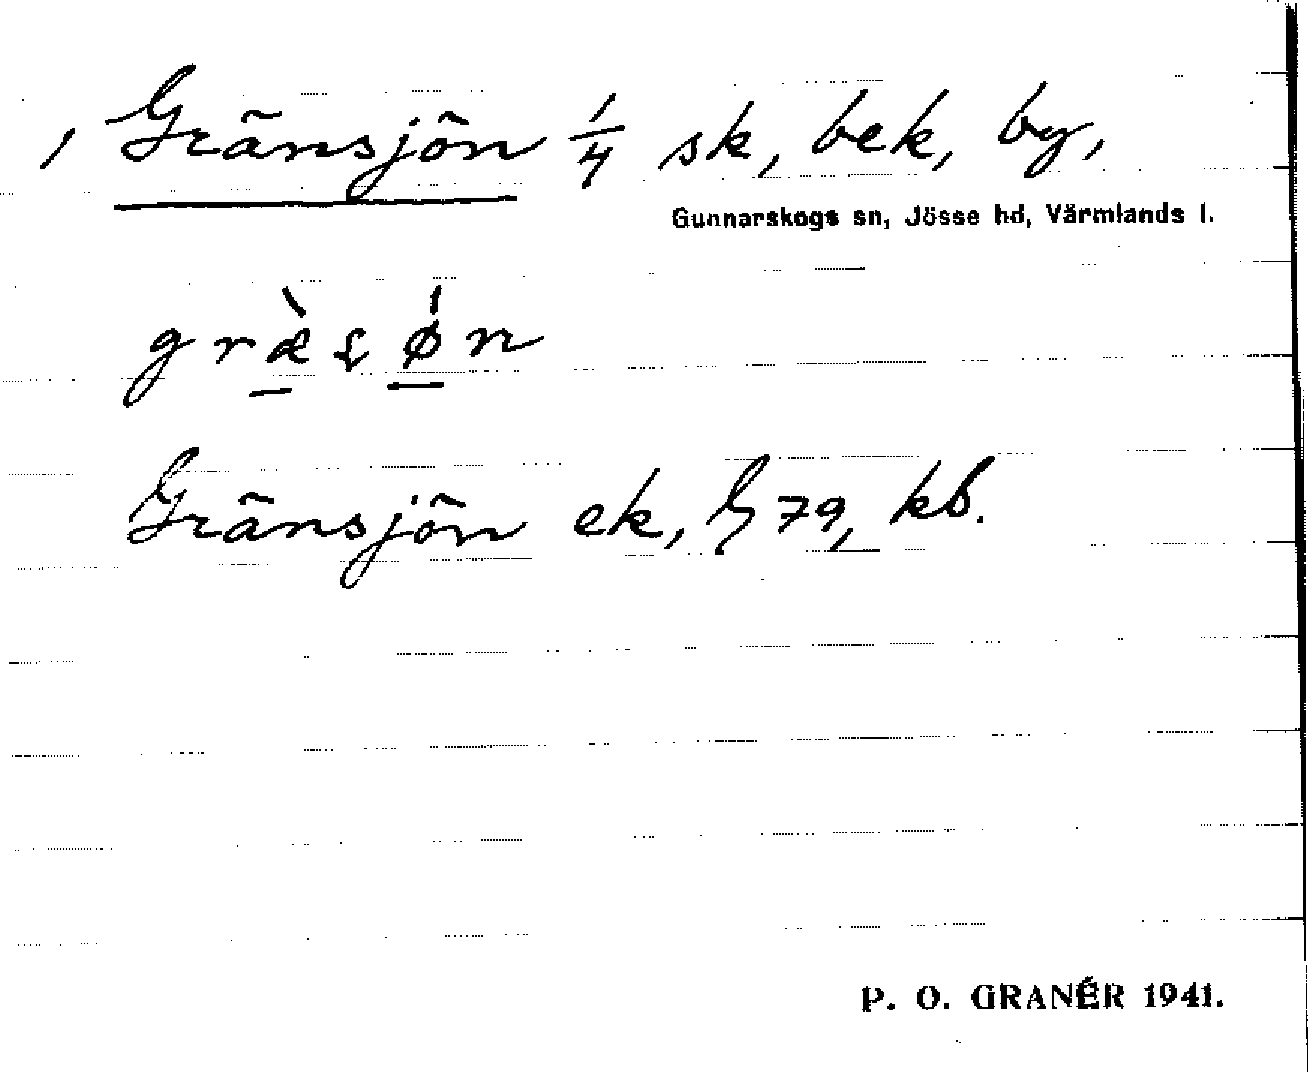 , Gränsjön 1/4 sk, bek, by,
Gunnarskogs sn, Jösse hd, Värmlands l.
Gränsjön ek, 79, kb.
P. O. GRANÉR 1941.